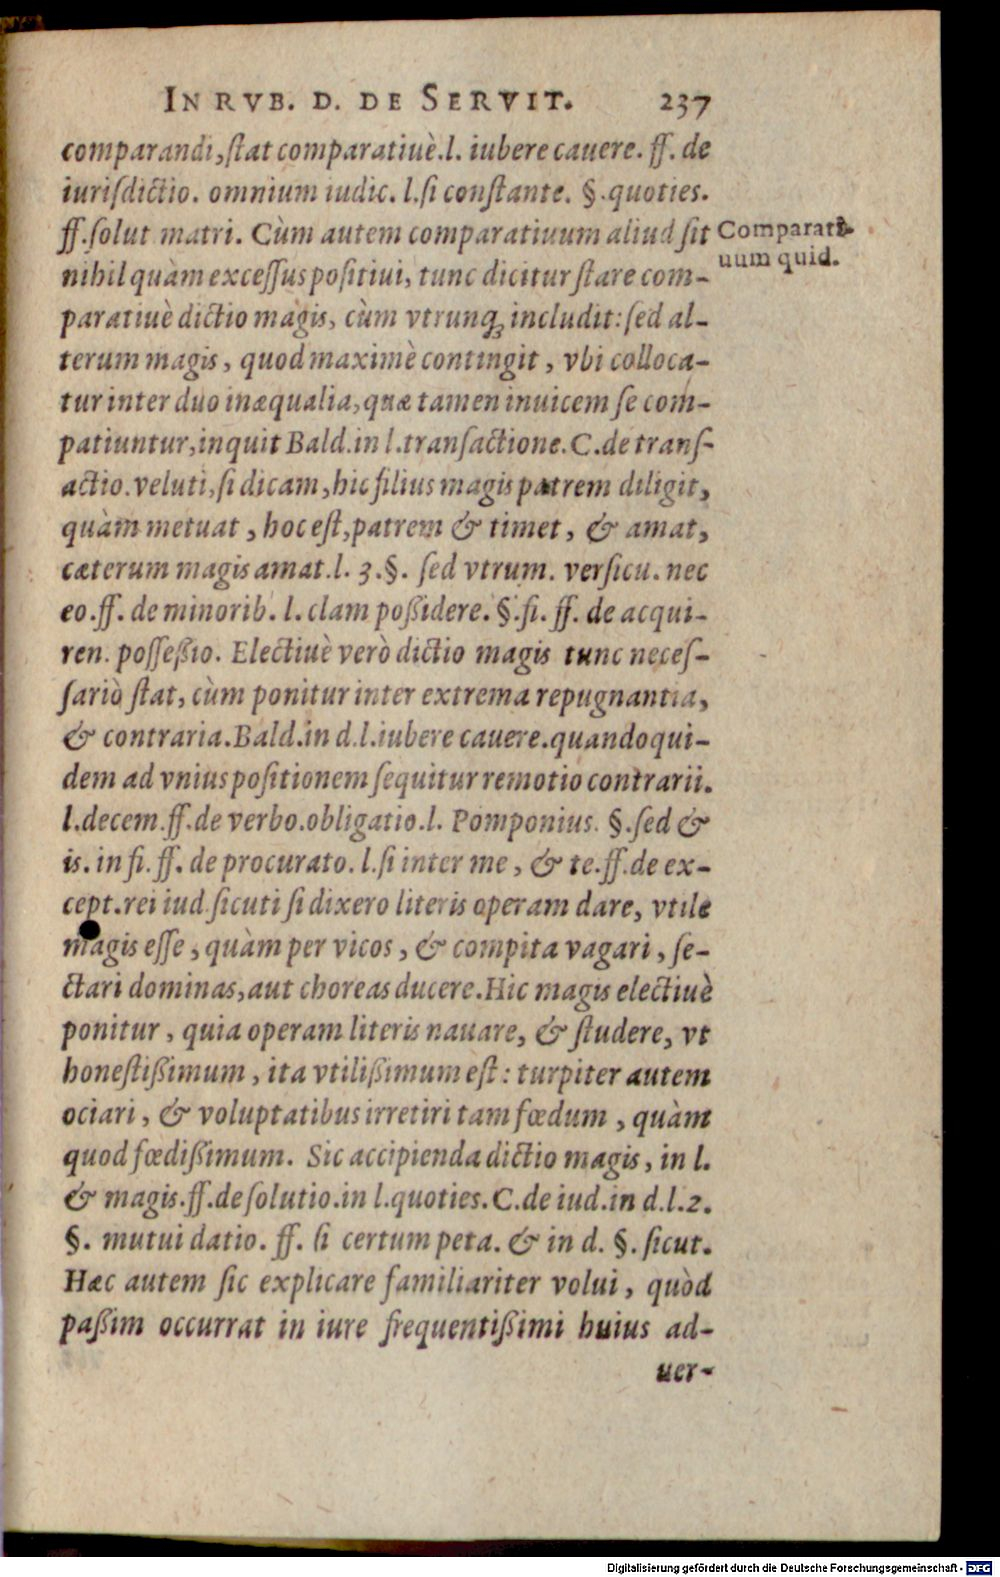 IN RVB. D. DE SERVIT. 237
comparandi, ſtat comparatiuè. l. iubere cauere. ff. de
iuriſdictio. omnium iudic. l. ſi conſtante. §. quoties.
ff. ſolut matri. Cùm autem comparatiuum aliud ſit
Comparati-
uum quid.
nihil quàm exceſſus poſitiui, tunc dicitur ſtare com-
paratiuè dictio magis, cùm vtrunq; includit: ſed al-
terum magis, quod maximè contingit, vbi colloca-
tur inter duo inæqualia, quæ tamen inuicem ſe com-
patiuntur, inquit Bald. in l. tranſactione. C. de tranſ-
actio. veluti, ſi dicam, hic filius magis patrem diligit,
quàm metuat, hoc eſt, patrem & timet, & amat,
cæterum magis amat. l. 3. §. ſed vtrum. verſicu. nec
eo. ff. de minorib. l. clam poßidere. §. fi. ff. de acqui-
ren. poſſeßio. Electiuè verò dictio magis tunc neceſ-
ſariò ſtat, cùm ponitur inter extrema repugnantia,
& contraria. Bald. in d. l. iubere cauere. quandoqui-
dem ad vnius poſitionem ſequitur remotio contrarii.
l. decem. ff. de verbo. obligatio. l. Pomponius. §. ſed &
is. in fi. ff. de procurato. l. ſi inter me, & te. ff. de ex-
cept. rei iud. ſicuti ſi dixero literis operam dare, vtile
magis eſſe, quàm per vicos, & compita vagari, ſe-
ctari dominas, aut choreas ducere. Hic magis electiuè
ponitur, quia operam literis nauare, & ſtudere, vt
honeſtißimum, ita vtilißimum eſt: turpiter autem
ociari, & voluptatibus irretiri tam fœdum, quàm
quod fœdißimum. Sic accipienda dictio magis, in l.
& magis. ff. de ſolutio. in l. quoties. C. de iud. in d. l. 2.
§. mutui datio. ff. ſi certum peta. & in d. §. ſicut.
Hæc autem ſic explicare familiariter volui, quòd
paßim occurrat in iure frequentißimi huius ad-
uer-
Digitalisierung gefördert durch die Deutsche Forschungsgemeinschaft - DFG